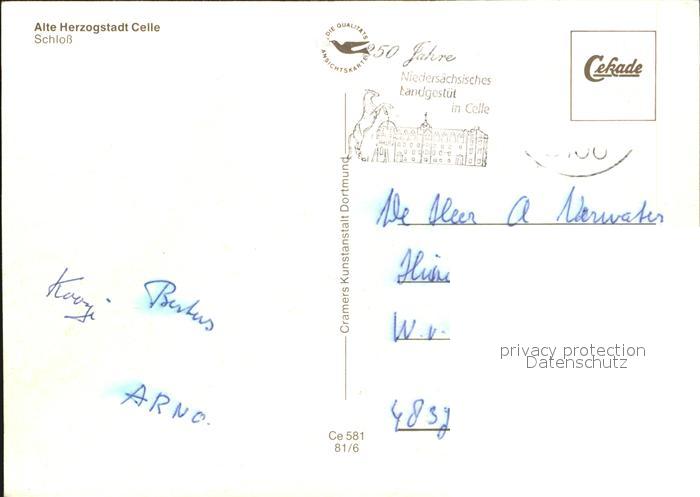 Alte Herzogstadt Celle
Schloß
DIE QUALITÄTS
ANSICHTSKARTE
250 Jahre
Niedersächsisches
Landgestüt
in Celle
Cekade
Cramers Kunstanstalt Dortmund
De Heer A
W.v.
Bertus
ARNO.
privacy protection
Datenschutz
Ce 581
81/6